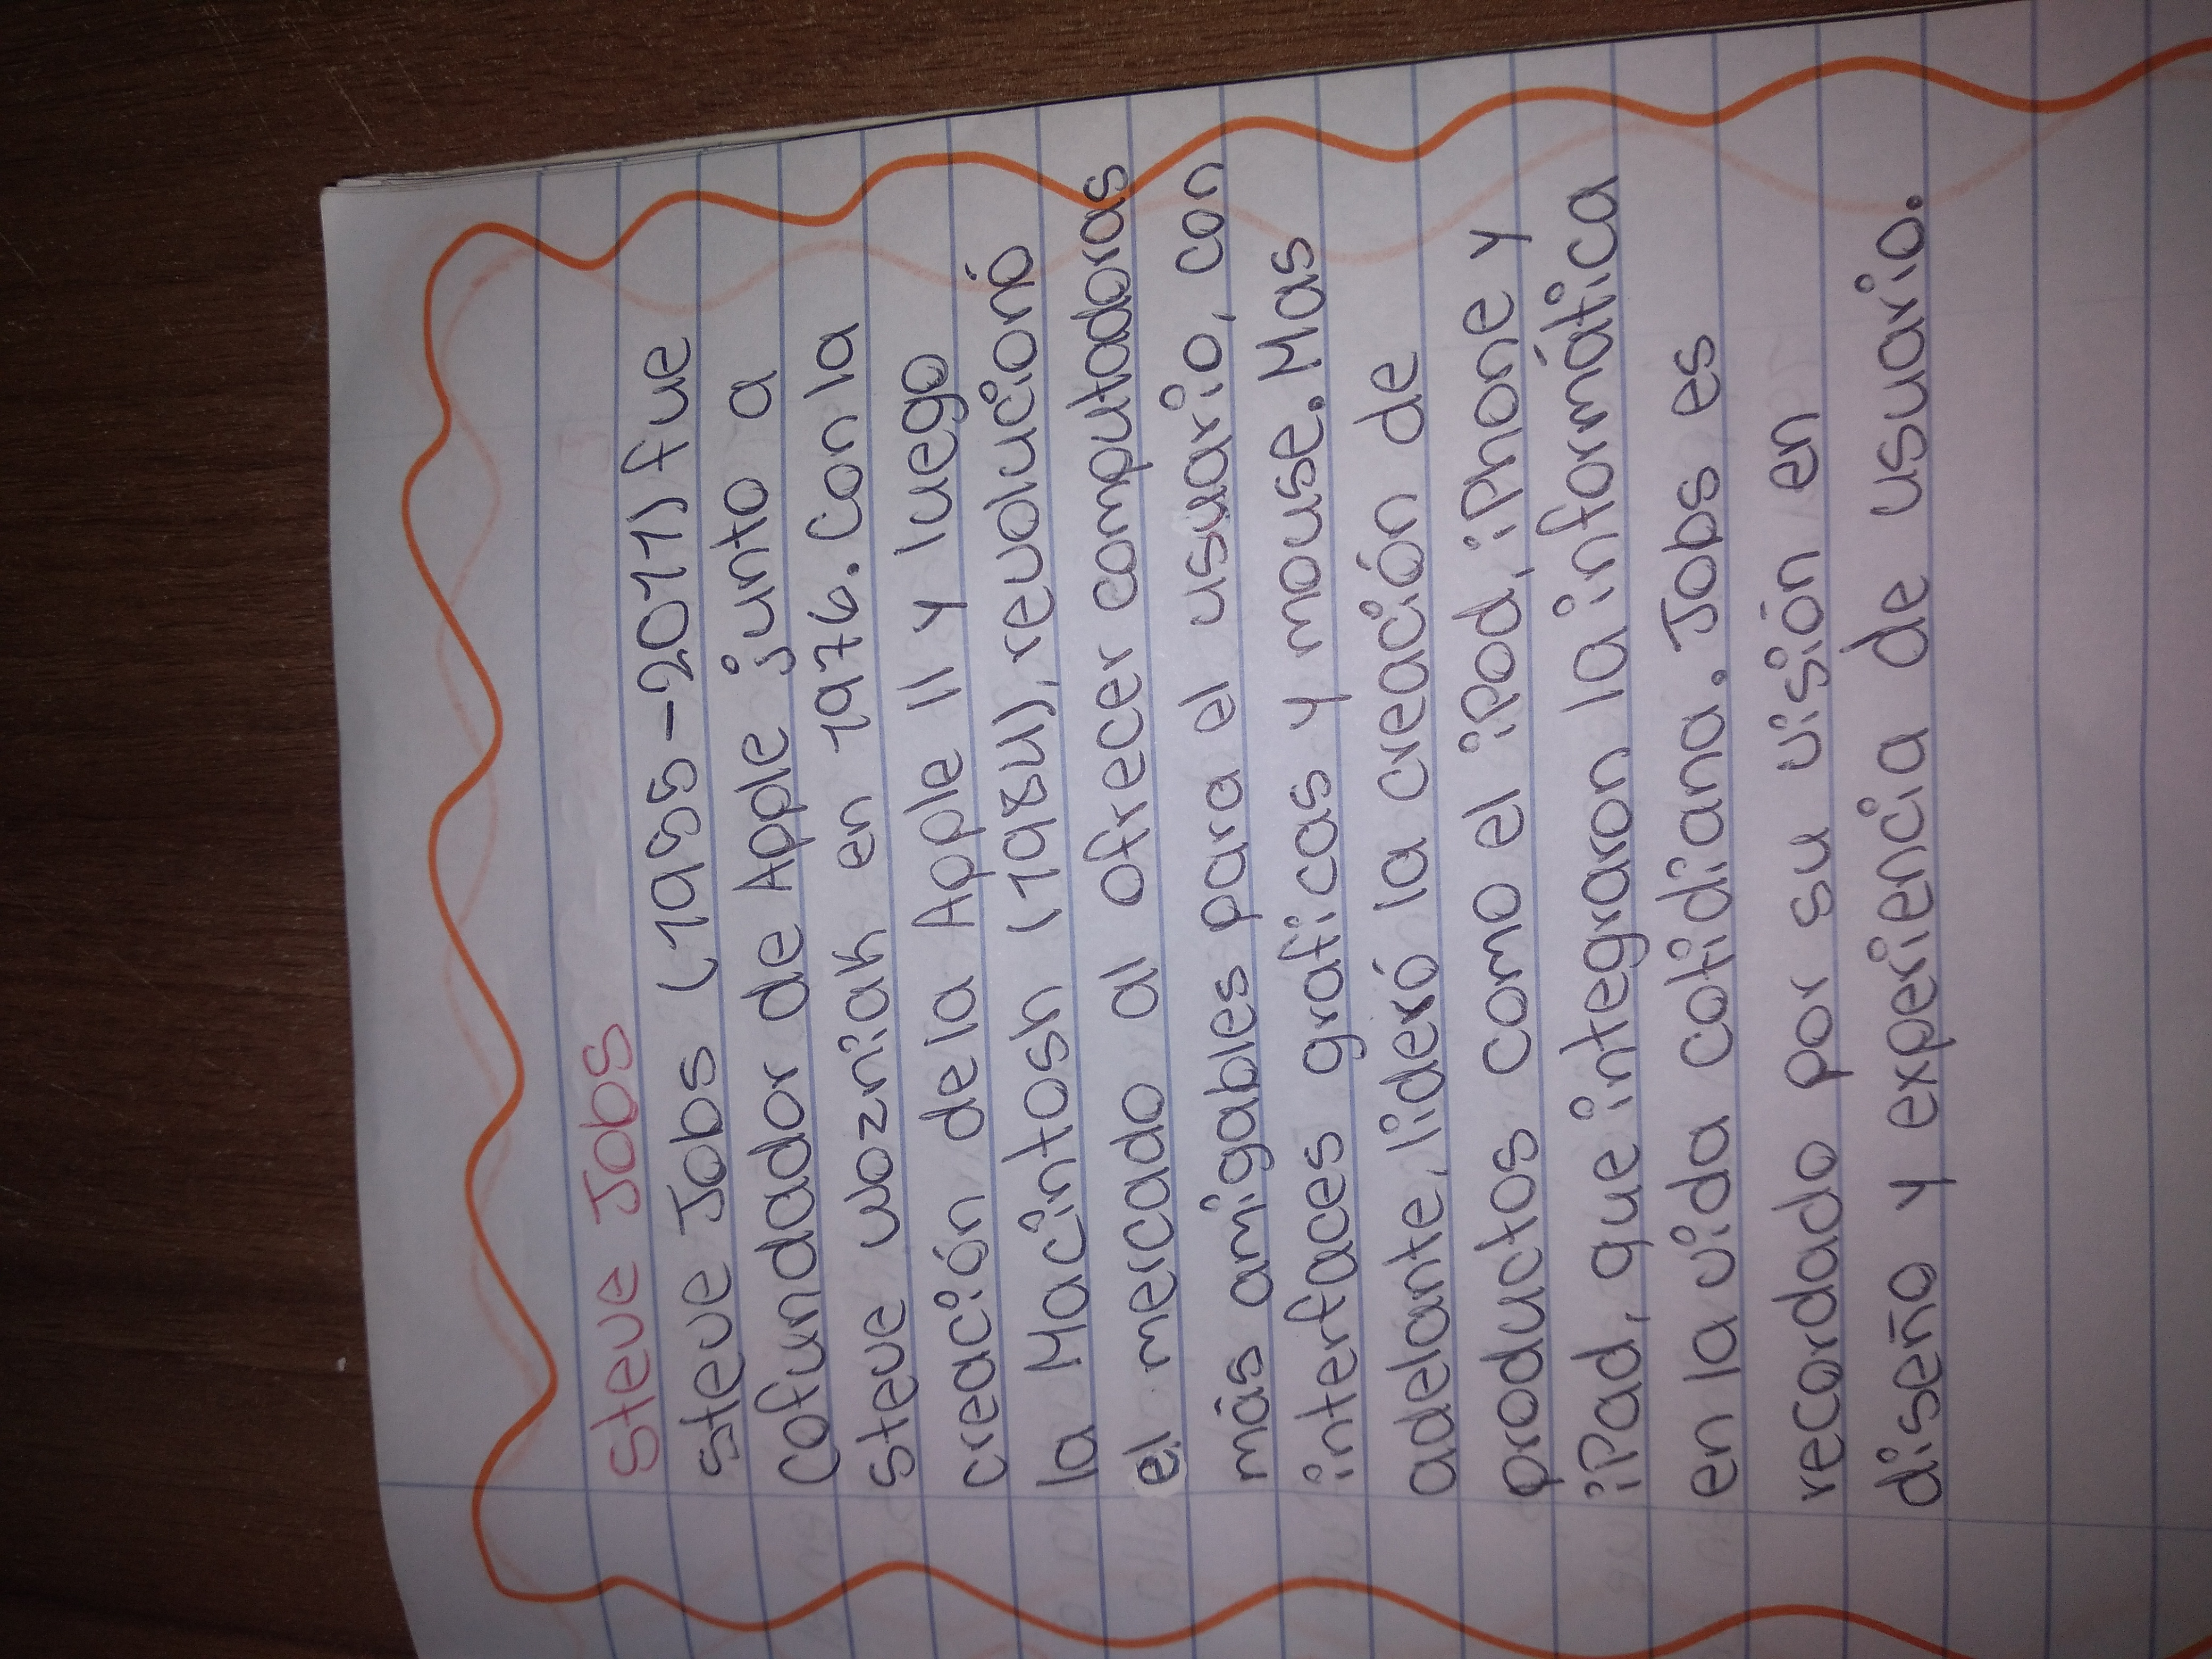 Steve Jobs
Steve Jobs (1955-2011) fue
Cofundador de Apple junto a
Steve wozniak en 1976. Con la
creación de la Apple II y luego
la Macintosh (1984), revolucionó
el mercado al ofrecer computadoras
más amigables para el usuario, con
interfaces graficas y mouse. Mas
adelante, lideró la creación de
productos como el iPod, iPhone y
iPad, que integraron la informática
en la vida cotidiana. Jobs es
recordado por su visión en
diseño y experiencia de usuario.